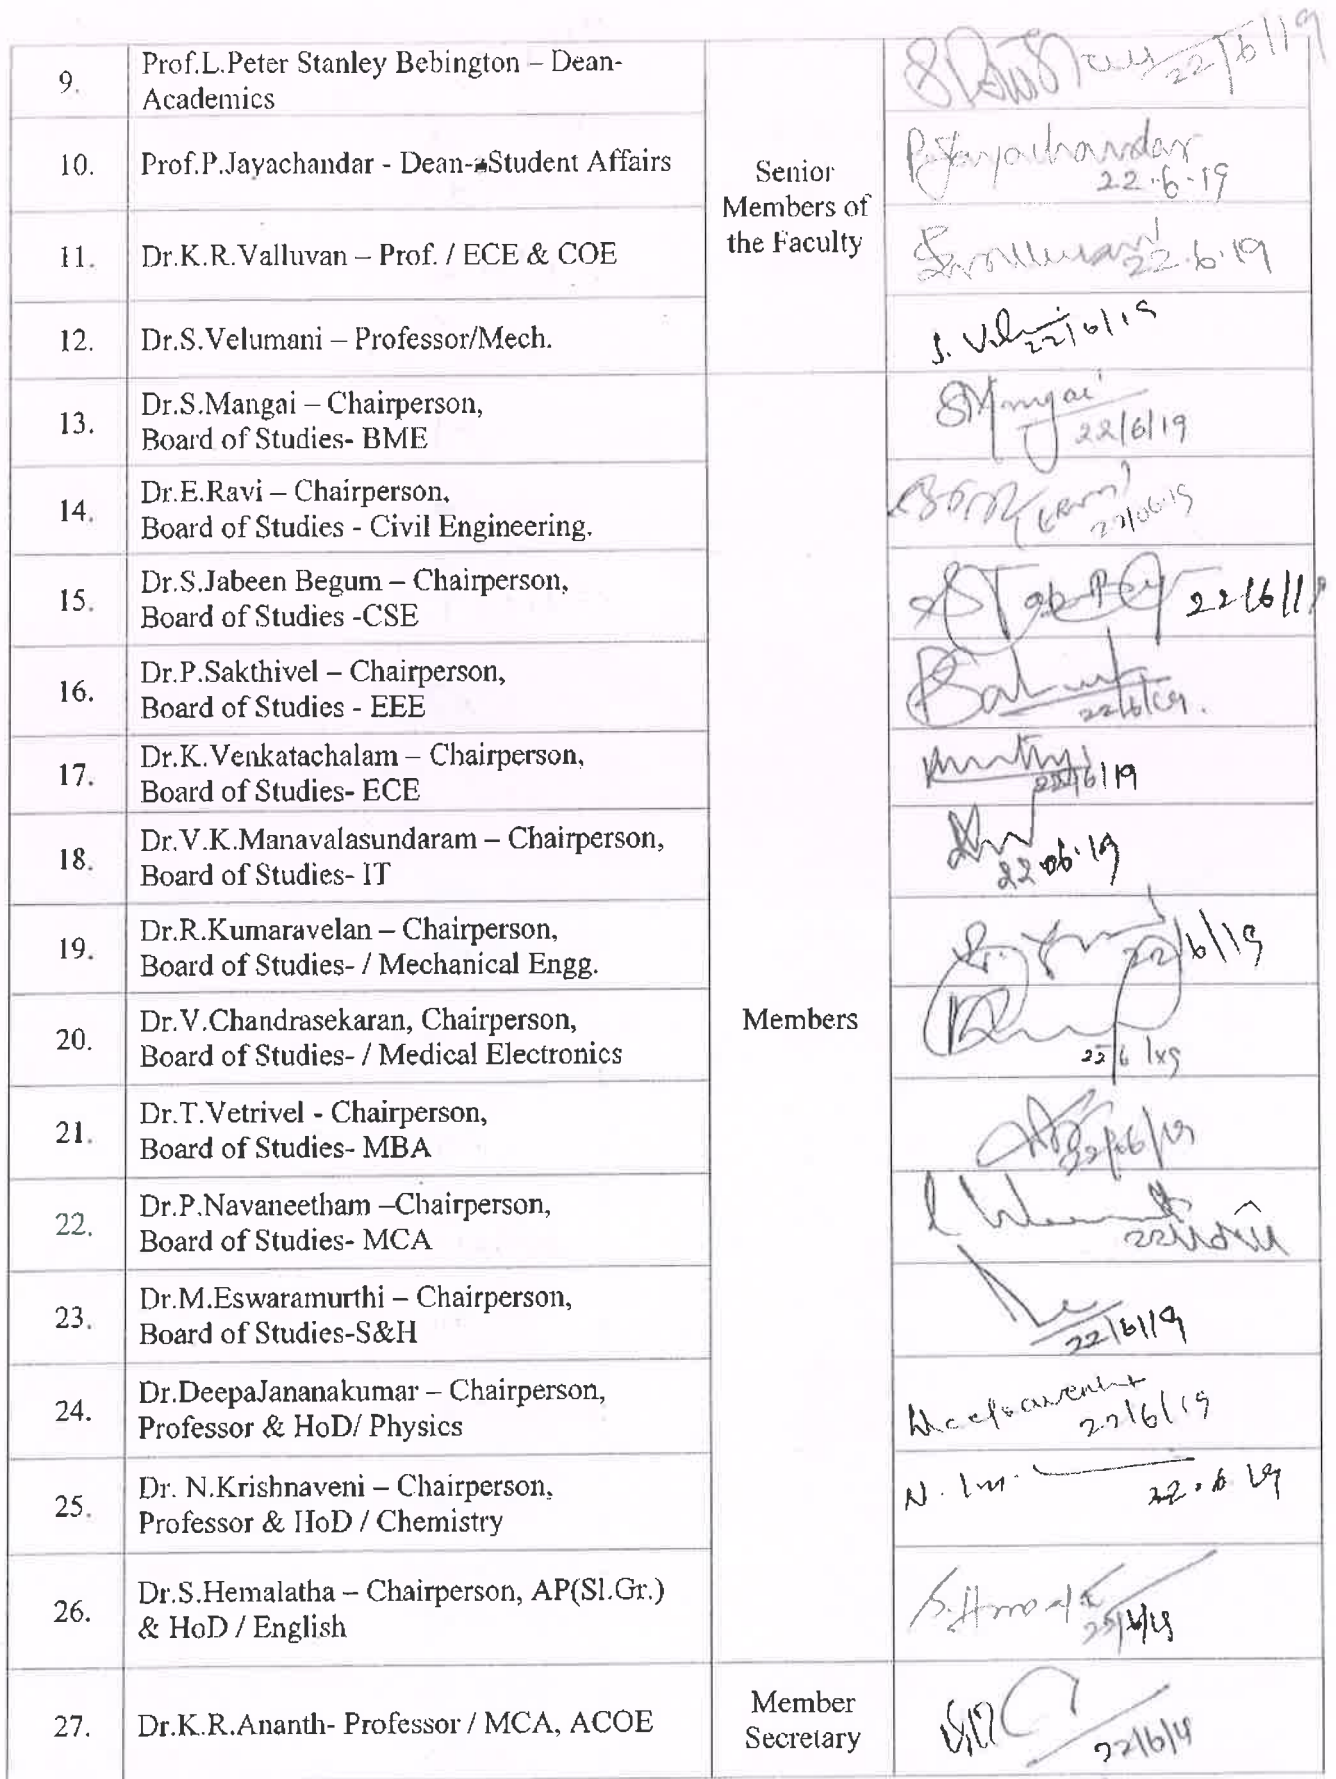 9.
Prof.L.Peter Stanley Bebington – Dean-
Academics
22/6/19
10.
Prof.P.Jayachandar - Dean- Student Affairs
P. Jayachandar
22-6-19
Senior
Members of
the Faculty
11.
Dr.K.R.Valluvan – Prof. / ECE & COE
22.6.19
12.
Dr.S.Velumani – Professor/Mech.
22/6/19
13.
Dr.S.Mangai – Chairperson,
Board of Studies- BME
SMangai
22/6/19
14.
Dr.E.Ravi – Chairperson,
Board of Studies - Civil Engineering.
22/06/19
15.
Dr.S.Jabeen Begum – Chairperson,
Board of Studies -CSE
22/6/19
16.
Dr.P.Sakthivel – Chairperson,
Board of Studies - EEE
22/6/19.
17.
Dr.K.Venkatachalam – Chairperson,
Board of Studies- ECE
22/6/19
18.
Dr.V.K.Manavalasundaram – Chairperson,
Board of Studies- IT
22.06.19
19.
Dr.R.Kumaravelan – Chairperson,
Board of Studies- / Mechanical Engg.
22/6/19
Members
20.
Dr.V.Chandrasekaran, Chairperson,
Board of Studies- / Medical Electronics
21.
Dr.T.Vetrivel - Chairperson,
Board of Studies- MBA
22/06/19
22.
Dr.P.Navaneetham –Chairperson,
Board of Studies- MCA
23.
Dr.M.Eswaramurthi – Chairperson,
Board of Studies-S&H
22/6/19
24.
Dr.DeepaJananakumar – Chairperson,
Professor & HoD/ Physics
22/6/19
25.
Dr. N.Krishnaveni – Chairperson,
Professor & HoD / Chemistry
22.6.19
26.
Dr.S.Hemalatha – Chairperson, AP(Sl.Gr.)
& HoD / English
27.
Dr.K.R.Ananth- Professor / MCA, ACOE
Member
Secretary
22/6/19